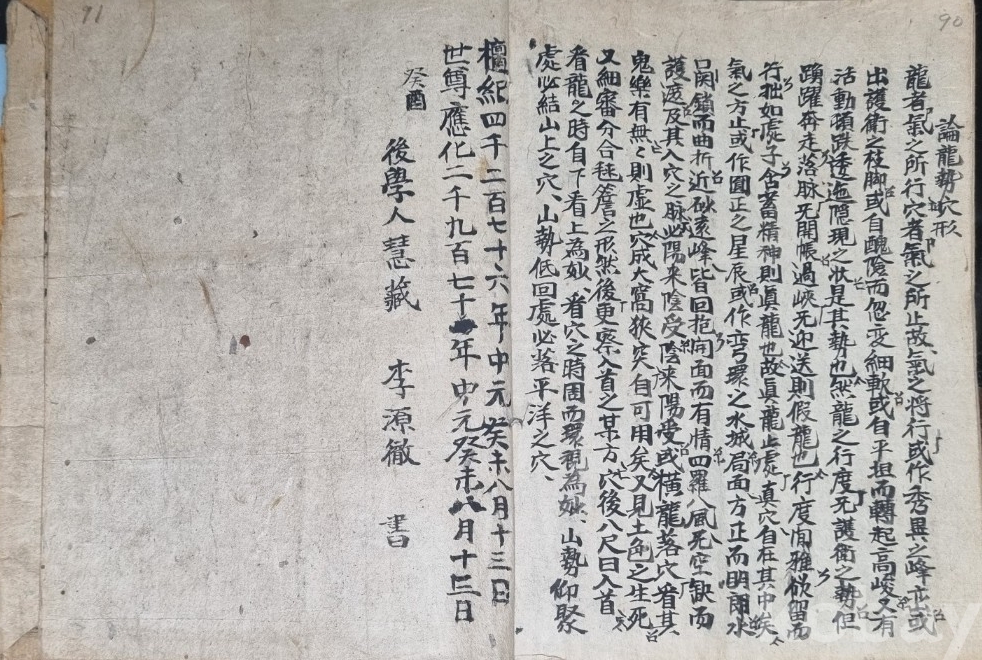 90
論龍勢穴形
龍者氣之所行穴者氣之所止故氣之將行或作秀異之峰巒或
出護衛之枝脚或自醜險而忽变細軟或自平坦而轉起高峻又有
活動頭跌逶迤隱現之状是其勢也然龍之行度无護衛之勢但
踴躍奔走落脉无開帳過峽无迎送則假龍也行度閒雅欲留而
行拙如處子含蓄精神則眞龍也故眞龍止處真穴自在其中矣
氣之方止或作圓正之星辰或作弯環之水城局面方正而明開水
口関鎖而曲折近砂遠峰皆回抱向面而有情四羅八風无空缺而
護送及其入穴之脉必陽来陰受陰来陽受或橫龍落穴看其
鬼樂有無々則虛也穴成大窩狹突自可用矣又見土色之生死
又細審分合毬簷之形然後更察入首之某方穴後八尺曰入首
看龍之時自下看上為妙、看穴之時周而環視為妙、山勢仰聚
處必結山上之穴、山勢低回處必落平洋之穴、
檀紀四千二百七十六年中元癸未八月十三日
世尊應化二千九百七十年中元癸未八月十三日
癸酉
後學人慧藏 李源徹 書
91